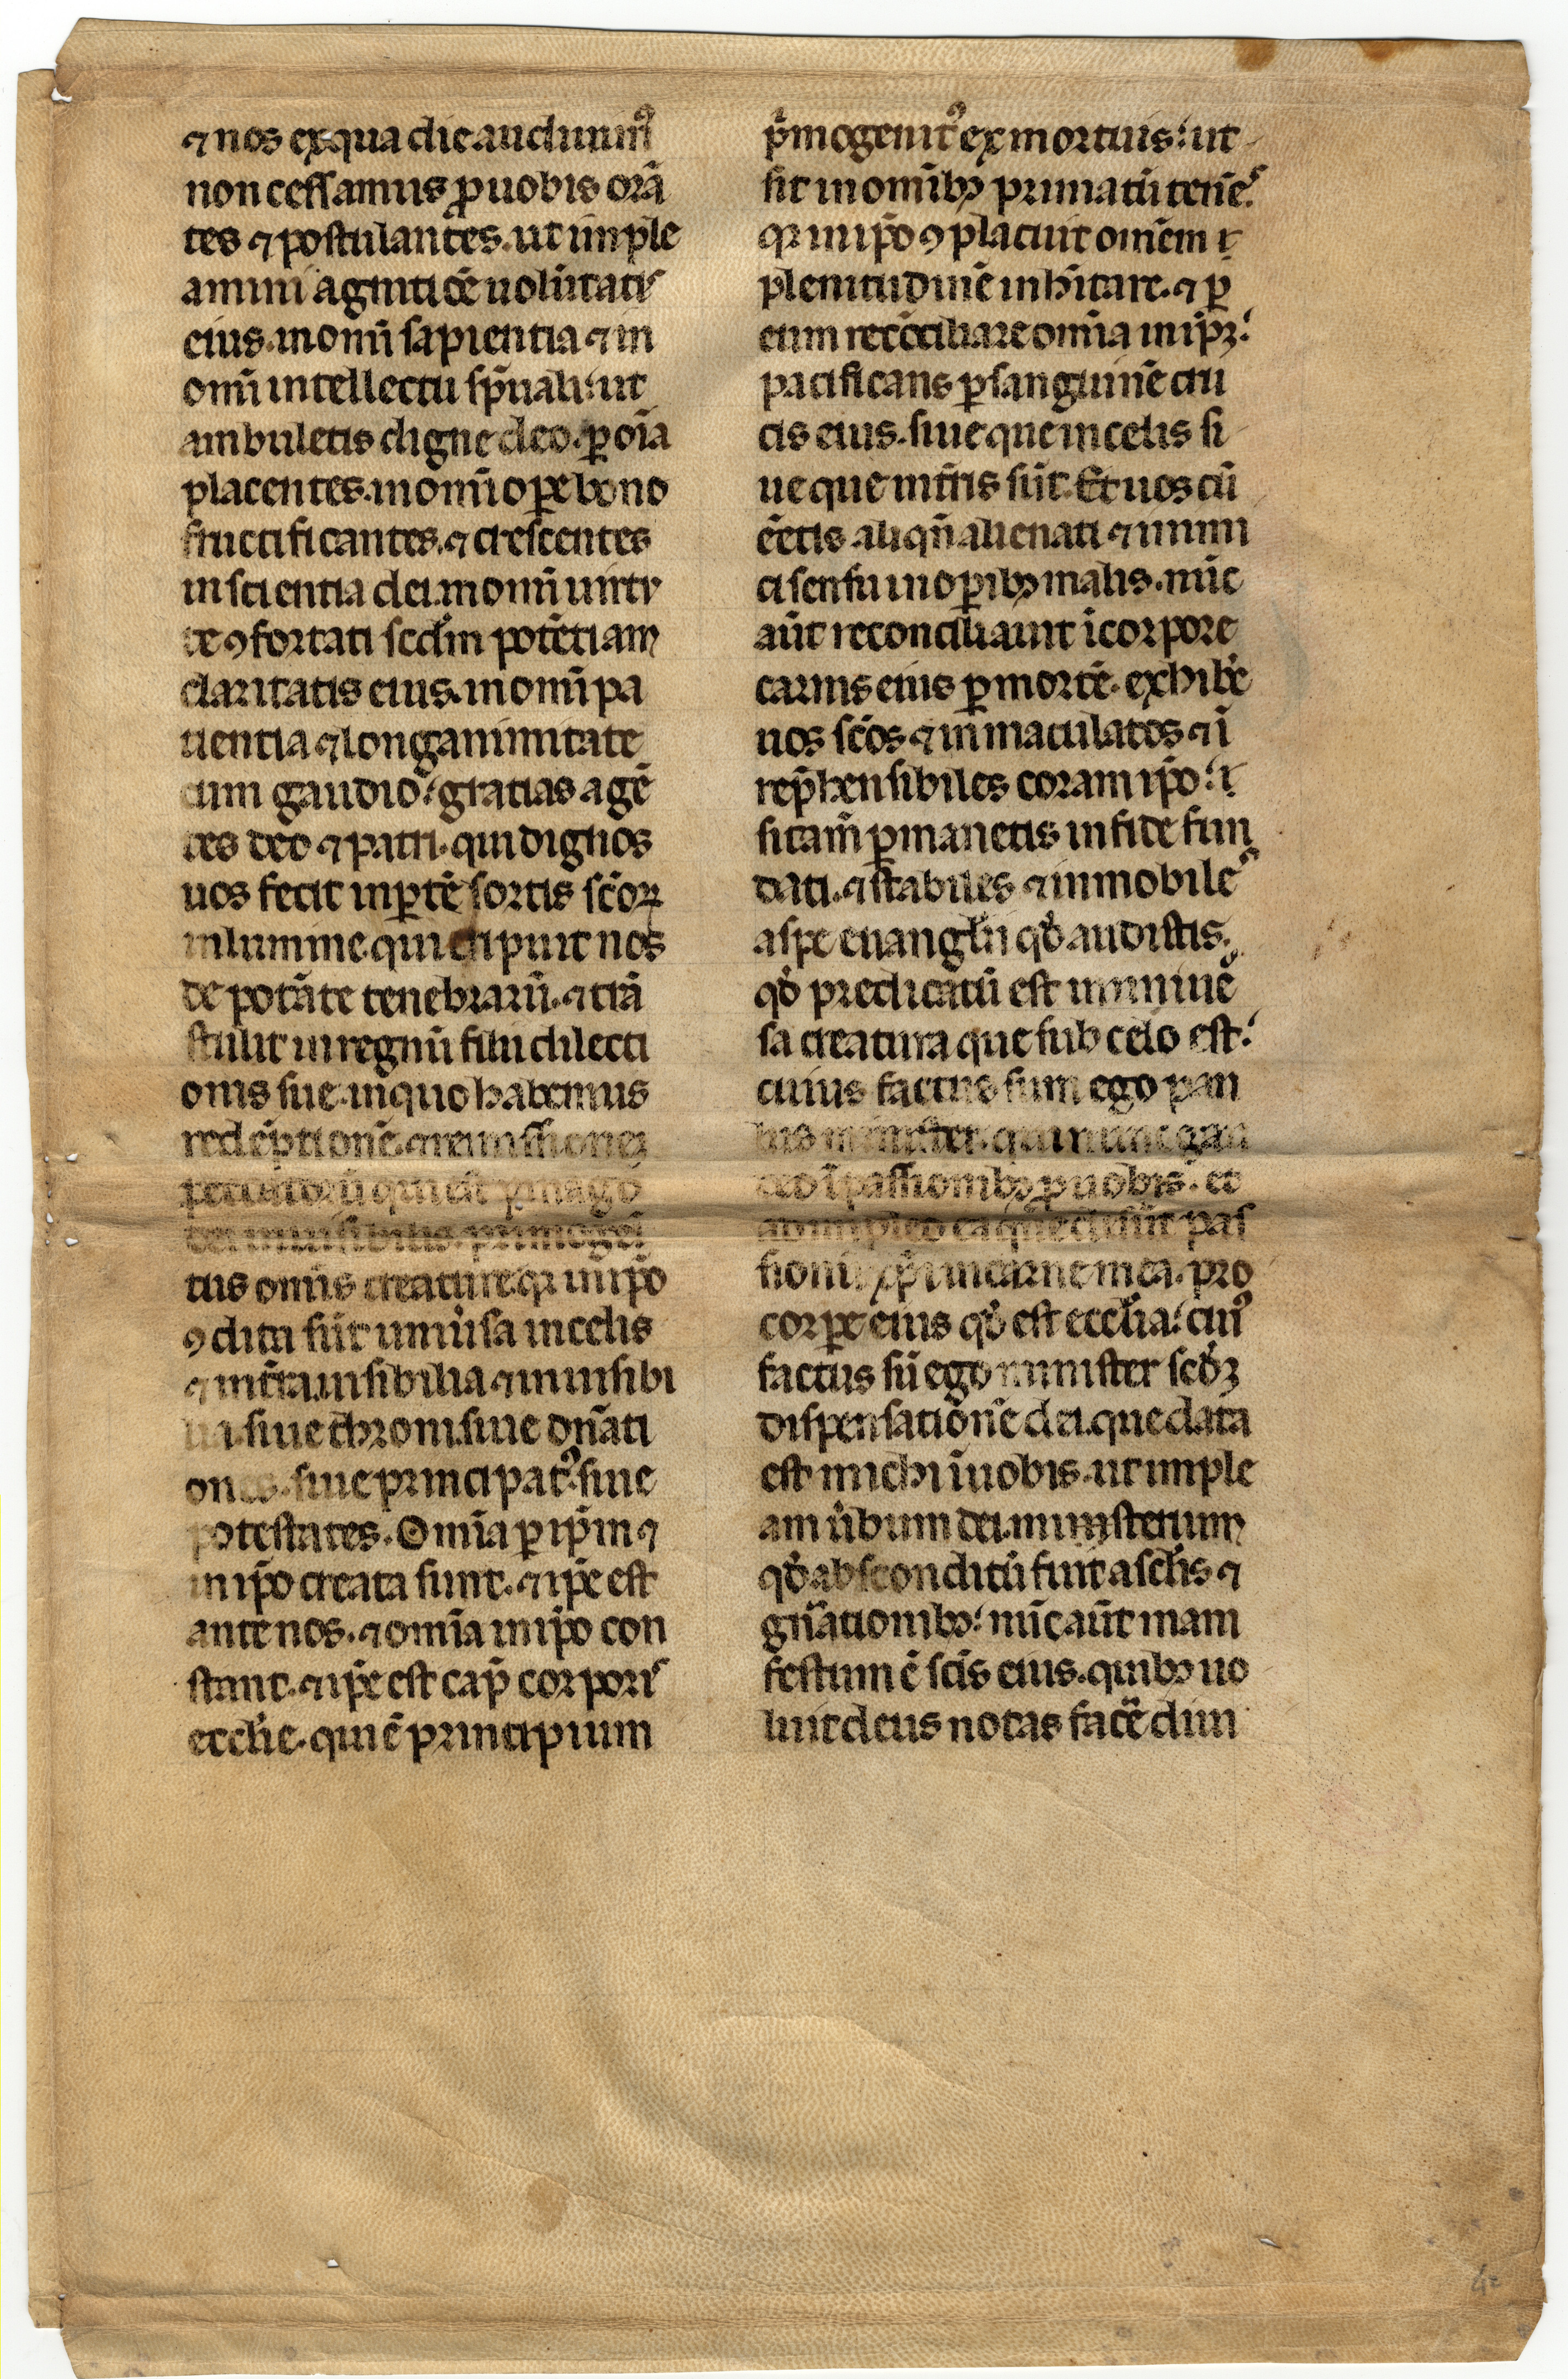 ⁊ nos ex qua die audiuimꝰ
non cessamus ꝓ uobis orā
tes ⁊ postulantes. ut imple
amini agnitiōē uolūtatis
eius. in omī sapientia ⁊ in
omī intellectu sp̄uali: ut
ambuletis digne deo. ꝑ oīa
placentes. in omī oꝑe bono
fructificantes. ⁊ crescentes
in scientia dei. in omī uirtu
te ꝯfortati scd̄m potētiam
claritatis eius. in omī pa
tientia ⁊ longanimitate
cum gaudio: gratias agē
tes deo ⁊ patri. qui dignos
uos fecit in ꝑtē sortis scōꝝ
in lumine. qui eripuit nos
de potāte tenebrarū. ⁊ trā
stulit in regnū filii dilecti
onis sue. in quo habemus
redēptionē. ⁊ remissionez
peccatorū. qui est ymago
dei inuisibilis. primogēi
tus omīs creature. qr in ip̄o
ꝯdita sūt uniũsa in celis
⁊ in t̄ra. uisibilia ⁊ inuisibi
lia. siue throni. siue dn̄ati
ones. siue principatꝰ. siue
potestates. Omīa ꝑ ip̄m ⁊
in ip̄o creata sunt. ⁊ ip̄e est
ante nos. ⁊ omīa in ip̄o con
stant. ⁊ ip̄e est cap̄ corporis
eccl̄ie. qui ē principium
p̄mogenitꝰ ex mortuis: ut
sit in omībꝫ primatū tenēs
qr in ip̄o ꝯplacuit omēm
plenitudinē inh̄itare. ⁊ ꝑ
eum recōciliare omīa in ip̄ꝫ:
pacificans ꝑ sanguinē cru
cis eius. siue que in celis si
ue que in t̄ris sūt. Et uos cū
ēetis aliqn̄ alienati ⁊ inimi
ci sensu in oꝑibꝫ malis. nūc
aūt reconciliauit ī corpore
carnis eius ꝑ mortē. exhibē
uos sc̄os ⁊ inmaculatos ⁊ ī
rep̄hensibiles coram ip̄o:
si tam̄ ꝑmanetis in fide fun
dati. ⁊ stabiles ⁊ inmobiles
a spe euangl̄ii qd̄ audistis.
qd̄ predicatū est in uniuē
sa creatura que sub celo est:
cuius factus sum ego pau
lus minister. qui nunc gau
deo ī passionibꝫ ꝓ uobis. et
adimpleo ea que desūt pas
sionū xp̄i in carne mea. pro
corꝑe eius qd̄ est eccl̄ia: cuiꝰ
factus sū ego minister scd̄ꝫ
dispensationē dei. que data
est michi ī uobis. ut imple
am ũbum dei. ministerium
qd̄ absconditū fuit a scl̄is ⁊
gn̄ationibꝫ: nūc aūt mani
festum ē sc̄is eius. quibꝫ uo
luit deus notas facē diui